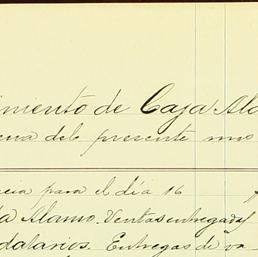 imiento de Caja Ala
cena del presente mes
cia para el día 16
la Álamo. Ventas entregadas
dalarios. Entregas de va